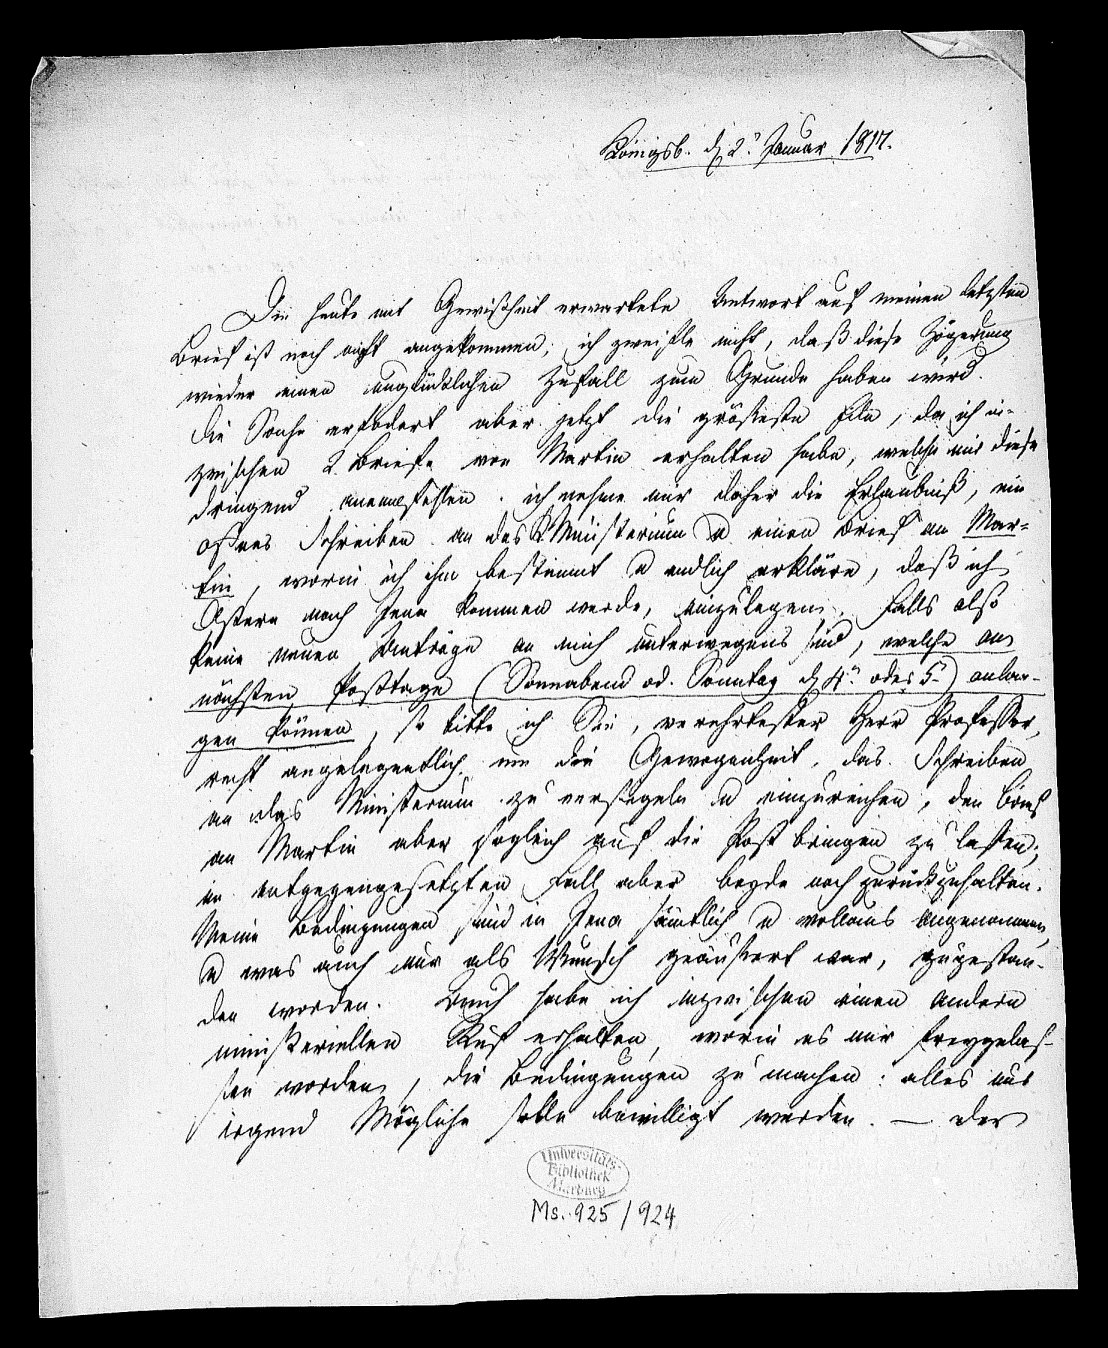 Königsb. d 2. Januar 1817.
Die heute mit Gewißheit erwartete Antwort auf meinen letzten
Brief ist noch nicht angekommen; ich zweifle nicht, daß diese Zögerung
wieder einen unglücklichen Zufall zum Grunde haben wird.
die Sache erfodert aber jetzt die größeste Eile, da ich in-
zwischen 2 Briefe von Martin erhalten habe, welche mir diese
dringend anempfehlen. ich nehme mir daher die Erlaubniß, ein
offnes Schreiben an das Ministerium u einen Brief an Mar-
tin, worin ich ihm bestimmt u endlich erkläre, daß ich
Ostern nach Jena kommen werde, einzulegen. Falls also
keine neuen Anträge an mich unterwegens sind, welche am
nächsten Posttage (Sonnabend od. Sonntag d 4. oder 5.) anlan-
gen können, so bitte ich Sie, verehrtester Herr Professor,
recht angelegentlich um die Gewogenheit, das Schreiben
an das Ministerium zu versiegeln u einzureichen, den Brief
an Martin aber sogleich auf die Post bringen zu lassen;
im entgegengesetzten Fall aber beyde noch zurückzuhalten.
Meine Bedingungen sind in Jena sämtlich u angenommen,
u was auch nur als Wunsch geäußert war, zugestan-
den worden. Auch habe ich inzwischen einen andern
ministeriellen Ruf erhalten, worin es mir freygelas-
sen worden, die Bedingungen zu machen: alles nur
irgend Mögliche solle bewilligt werden. — der
Universitäts-
Bibliothek
Marburg
Ms. 925/924